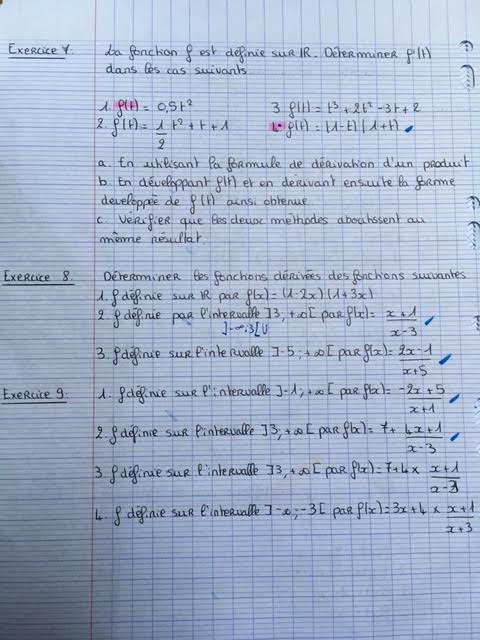 Exercice 7. La fonction f est définie sur IR. Déterminer f'(t)
dans les cas suivants
1. f(t) = 0,5t² 3. f(t) = t³ + 2t² - 3t + 2
2. f(t) = 1/2 t² + t + 1 4. f(t) = (1-t)(1+t)
a. En utilisant la formule de dérivation d'un produit
b. En développant f(t) et en dérivant ensuite la forme
développée de f(t) ainsi obtenue
c. Vérifier que les deux méthodes aboutissent au
même résultat.
Exercice 8. Déterminer les fonctions dérivées des fonctions suivantes
1. f définie sur IR par f(x) = (1-2x)(1+3x)
2. f définie par l'intervalle ]3, +∞[ par f(x) = x+1/x-3
]-∞;3[ U
3. f définie sur l'intervalle ]-5; +∞[ par f(x) = 2x-1/x+5
Exercice 9: 1. f définie sur l'intervalle ]-1, +∞[ par f(x) = -2x+5/x+1
2. f définie sur l'intervalle ]3, +∞[ par f(x) = 7 + 4x+1/x-3
3. f définie sur l'intervalle ]3, +∞[ par f(x) = 7+4 × x+1/x-3
4. f définie sur l'intervalle ]-∞; -3[ par f(x) = 3x+4 × x+1/x+3